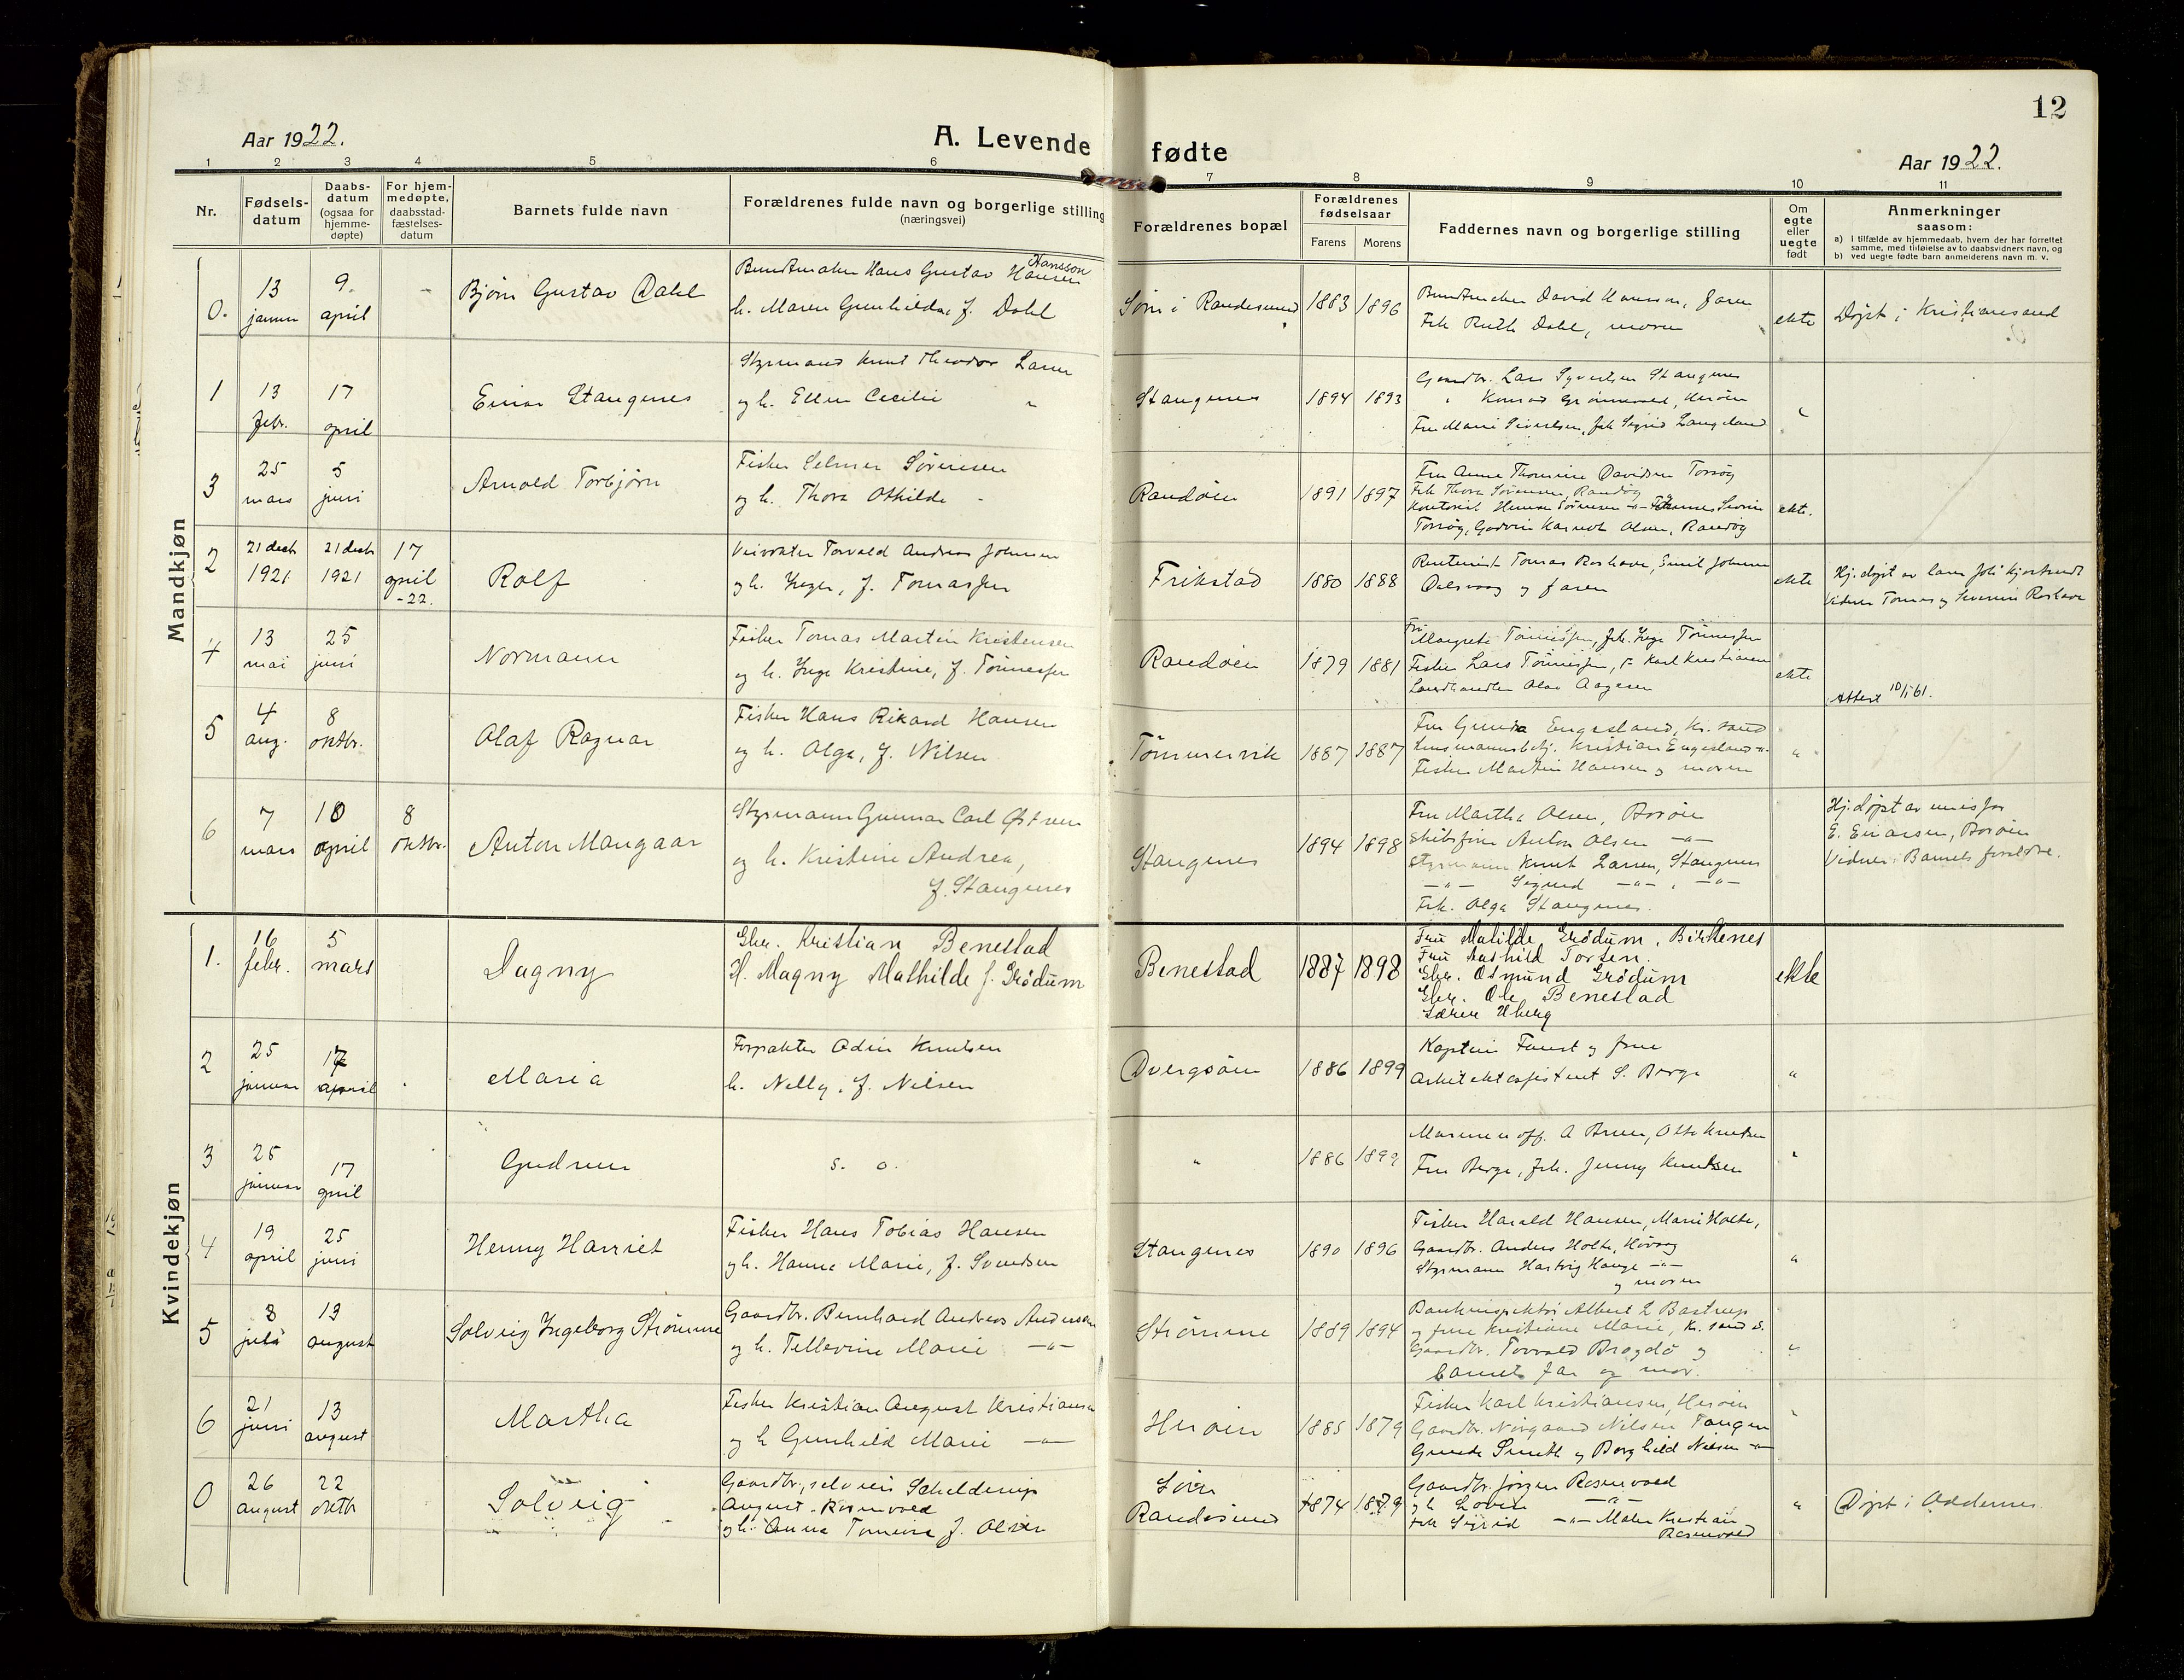 12
Aar 1922.
A. Levende fødte
Aar 1922.
1 2 3 4 5 6 7 8 9 10 11
Nr.
Fødsels-
datum
Daabs-
datum
(ogsaa for
hjemme-
døpte)
For hjem-
medøpte,
daabsstad-
fæstelses-
datum
Barnets fulde navn
Forældrenes fulde navn og borgerlige stilling
(næringsvei)
Forældrenes bopæl
Forældrenes
fødselsaar
Farens Morens
Faddernes navn og borgerlige stilling
Om
egte
eller
uegte
født
Anmerkninger
saasom:
a) I tilfælde av hjemmedaab, hvem der har forrettet
samme, med tilføielse av to daabsvidners navn, og
b) ved uegte fødte barn anmelderens navn m. v.
Mandkjøn
0.
13
januar
9
april
Bjørn Gustav Dahl
Buntmaker Hans Gustav Hansen
Hansson
h. Maren Gunhilda, f. Dahl
Søm i Randesund
1883 1896
Buntmaker David Hansson, faren
Frk Ruth Dahl, moren
ekte
Døpt i Kristiansand
1
13
febr.
17
april
Einar Stangenes
Styrmand Knut Theodor Larsen
og h. Ellen Cecilie "
Stangenes
1894 1893
Gaardbr. Lars Syvertsen Stangenes
" Konrad Herøien
Fru Marie Sivertsen, frk Sigrid Langeland
"
3
25
mars
5
juni
Arnold Torbjørn
Fisker Selmer Sørensen
og h. Thora Othilde "
Randøien
1891 1897
Fru Anne Thomine Davidsen Torsøy
Frk Thora Sørensen, Randøy
Torsøy, Olsen, Randøy
ekte.
2
21 decb
1921
21 decb
1921
17
april
-22.
Rolf
Veivokter Torvald Andreas Johnsen
og h. Inger, f. Tomassen
Frikstad
1880 1888
Tomas Roshave, Emil Johnsen
og faren
ekte
Hj.døpt av
Vidner Tomas og Severin Roshave
4
13
mai
25
juni
Normann
Fisker Tomas Martin Kristensen
og h. Inga Kristine, f. Tønnessen
Randøien
1879 1881
Fru
Margrete Tønnessen, frk. Inga Tønnessen
Fisker Lars Tønnessen, F. Karl Kristiansen
Landhandler Olai Aagesen
ekte
Attest 10/1 61.
5
4
aug.
8
oktbr.
Olaf Ragnar
Fisker Hans Rikard Hansen
og h. Olga, f. Nilsen
Tømmervik
1887 1887
Fru Gunda Engesland, Kr. sand
Lensmannsbetj. Kristian Engesland -"-
Fisker Martin Hansen og moren
"
6
7
mars
10
april
8
oktbr.
Anton Mangaar
Styrmann Gunnar Carl Østreen
og h. Kristine Andrea,
f. Stangenes
Stangenes
1894 1898
Fru Martha Olsen, Borøen
Skibsfører Anton Olsen -"-
Styrmann Knut Larsen, Stangenes
-"- Sigurd -"- , -"-
Frk. Olga Stangenes.
Hj.døpt av emisfør
E. Einarsen, Borøen
Vidner: Barnets foreldre.
Kvindekjøn
1.
16
febr.
5
mars
Dagny
Gbr. Kristian Benestad
H. Magny Mathilde f. Grødum
Benestad
1887 1898
Fru Matilde Grødum, Birkenes
Fru Aashild Torsen.
Gbr. Osmund Grødum
Gbr. Ole Benestad
Lærer Uberg
ekte
2
25
januar
17
april
Maria
Forpakter Odin Knutsen
h. Nelly, f. Nilsen
Dvergsøien
1886 1899
Kaptein Faust og frue
Arkitektassistent S. Berge
"
3
25
januar
17
april
Gudrun
s. o.
"
1886 1899
Marineoff. A Bruu, Olte Knutsen
Fru Berge, frk. Jenny Knudsen
"
4
19
april
25
juni
Henny Harriet
Fisker Hans Tobias Hansen
og h. Hanna Marie, f. Svendsen
Stangenes
1890 1896
Fisker Harald Hansen, Marie Holte,
Gaardbr. Anders Holte, Høvåg
Styrmann Hartvig Hauge -"-
og moren
"
5
8
juli
13
august
Solveig Ingeborg Strømme
Gaardbr. Bernhard Andreas Andersen
og h. Tellevine Marie -"-
Strømme
1889 1894
Bankinspektør Albert L Bastrup
og frue Kristiane Marie, Kr. sand S.
Gaardbr. Torvald Bragdø og
barnets far og mor.
"
6
21
juni
13
august
Martha
Fisker Kristian August Kristiansen
og h Gunhild Marie -"-
Herøien
1885 1879
Fisker Karl Kristiansen, Herøien
Gaardbr. Norgaard Nilsen Tangen
Gunda Smith og Borghild Nilsen -"-
"
0
26
august
22
oktb
Solveig
Gaardbr., selveier Schelderup
August Rosenvold
og h. Anna Tomine f. Olsen
Søm
Randesund
1874 1879
Gaardbr. Jørgen Rosenvold
og h Lovise -"-
Frk Sigrid -"- Maler Kristian
Rosenvold
"
Døpt i Oddernes